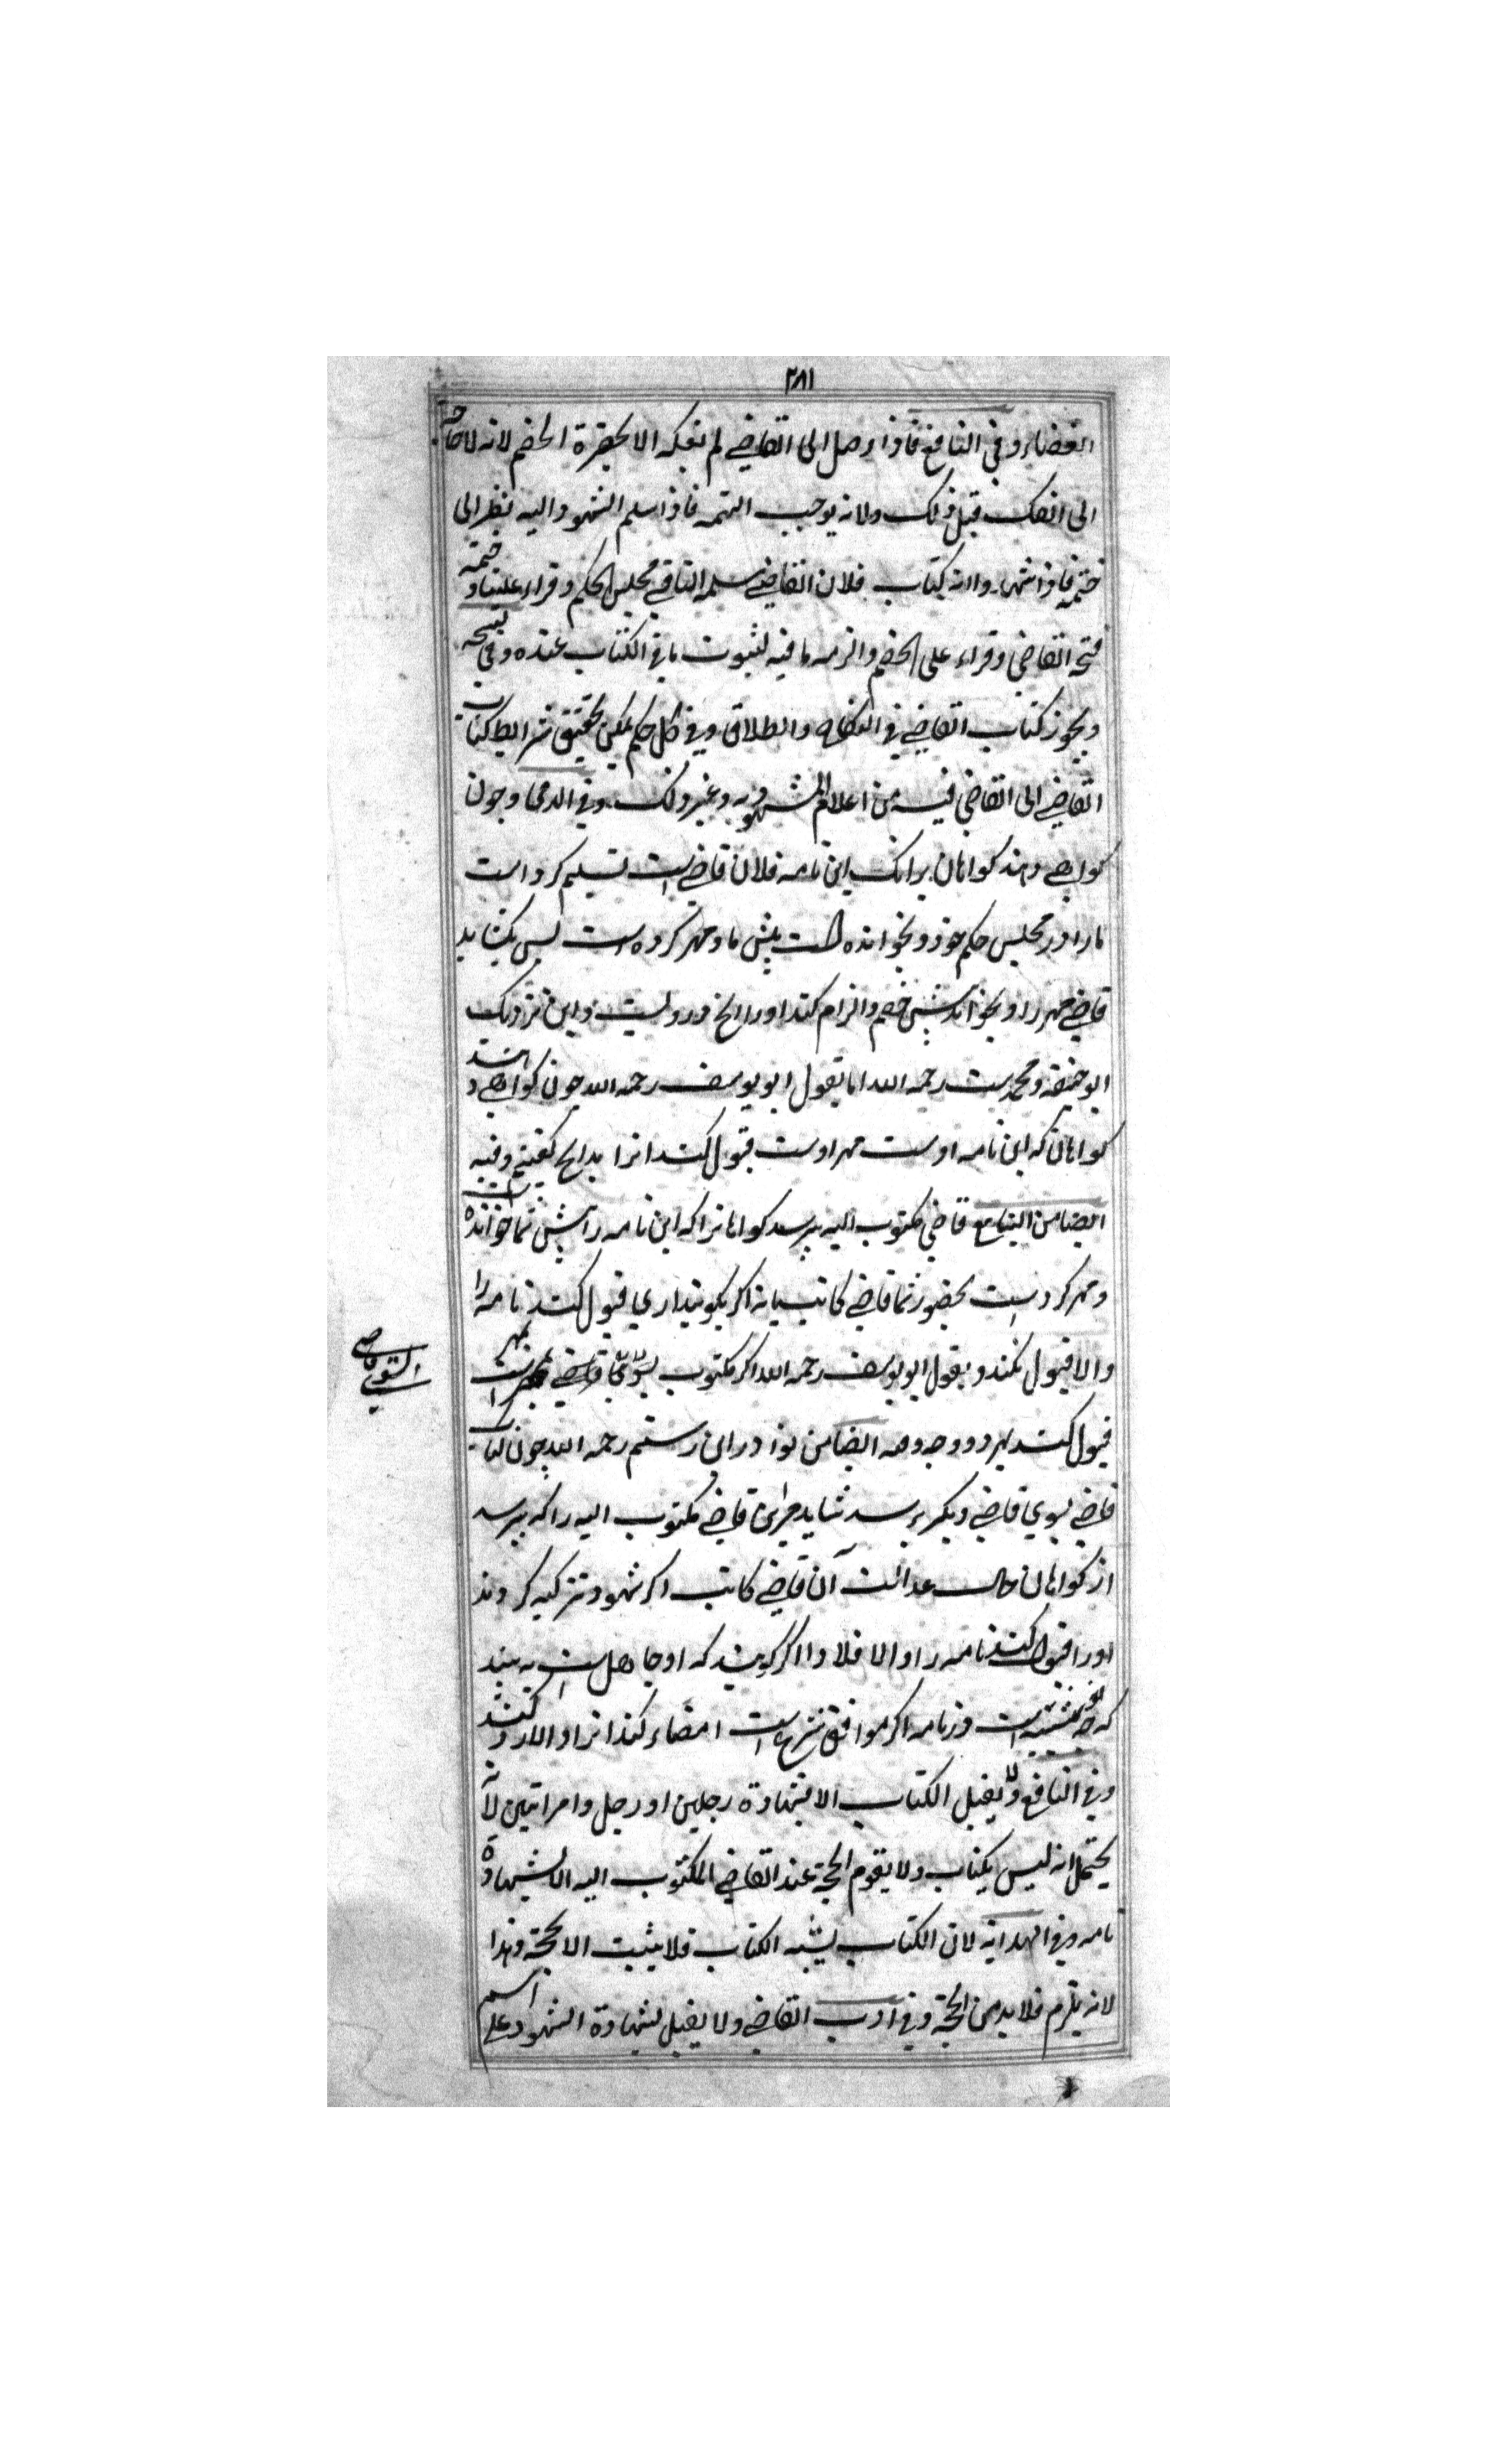 ۲۸۱
القضاء وفی النافع فاذا وصل الی القاضی لم یفکه الا بحضرة الخصم لانه لا حاجة
الی الفک قبل ذلک ولانه یوجب التهمه فاذا سلم الشهود الیه نظر الی
ختمه فاذا شهدوا انه کتاب فلان القاضی سلمه الینا فی مجلس الحکم وقراء علینا وختمه
فتحه القاضی وقراء علی الخصم والزمه ما فیه لثبوت ما فی الکتاب عنده وفی
ویجوز کتاب القاضی فی النکاح والطلاق وفی کل حکم یمکن تحقیق شرایط کتاب
القاضی الی القاضی فیه من اعلام المشهود به وغیر ذلک وفی الدعی وچون
کواهی دهند کواهان برانک این نامه فلان قاضی است تسلیم کرد است
مارا در مجلس حکم خود و بخوانده است پیش ما و مهر کرده است پس بکشاید
قاضی مهر را و بخواند پیش خصم و الزام کند اورا انچ در ویست و این نزدیک
ابو حنیفه و محمد ست رحمه الله اما بقول ابو یوسف رحمه الله چون کواهی دهند
کواهان که این نامه اوست مهر اوست قبول کند انرا بدانچ کفتیم وفیه
ایضا من الینابیع قاضی مکتوب الیه بپرسد کواهانرا که این نامه را پیش شما خوانده است
و مهر کرد است بحضور شما قاضی کاتب یا نه اکر بکویند اری قبول کند نامه را
والا قبول نکند و بقول ابو یوسف رحمه الله اکر مکتوب بسوی قاضی بمهر است
قبول کند بهر دو وجه وفیه ایضا من نوادر ابن رستم رحمه الله چون کتاب
قاضی بسوی قاضی دیکر برسد شاید مر این قاضی مکتوب الیه را که بپرسد
از کواهان حال عدالت آن قاضی کاتب اکر شهود تزکیه کردند
اورا قبول کند نامه را والا فلا و اکر کویند که او جاهل است به بیند
که چه نبشته است در نامه اکر موافق شرع است امضاء کند انرا والا رد کند
وفی النافع ولا یقبل الکتاب الا بشهادة رجلین او رجل وامراتین لانه
یحتمل انه لیس بکتاب ولا یقوم الحجة عند القاضی المکتوب الیه الا بشهادة
تامه وفی الهدایه لان الکتاب یشبه الکتاب فلا یثبت الا بحجة وهذا
لانه یلزم فلا بد من الحجة وفی ادب القاضی ولا یقبل شهادة الشهود علی اسم